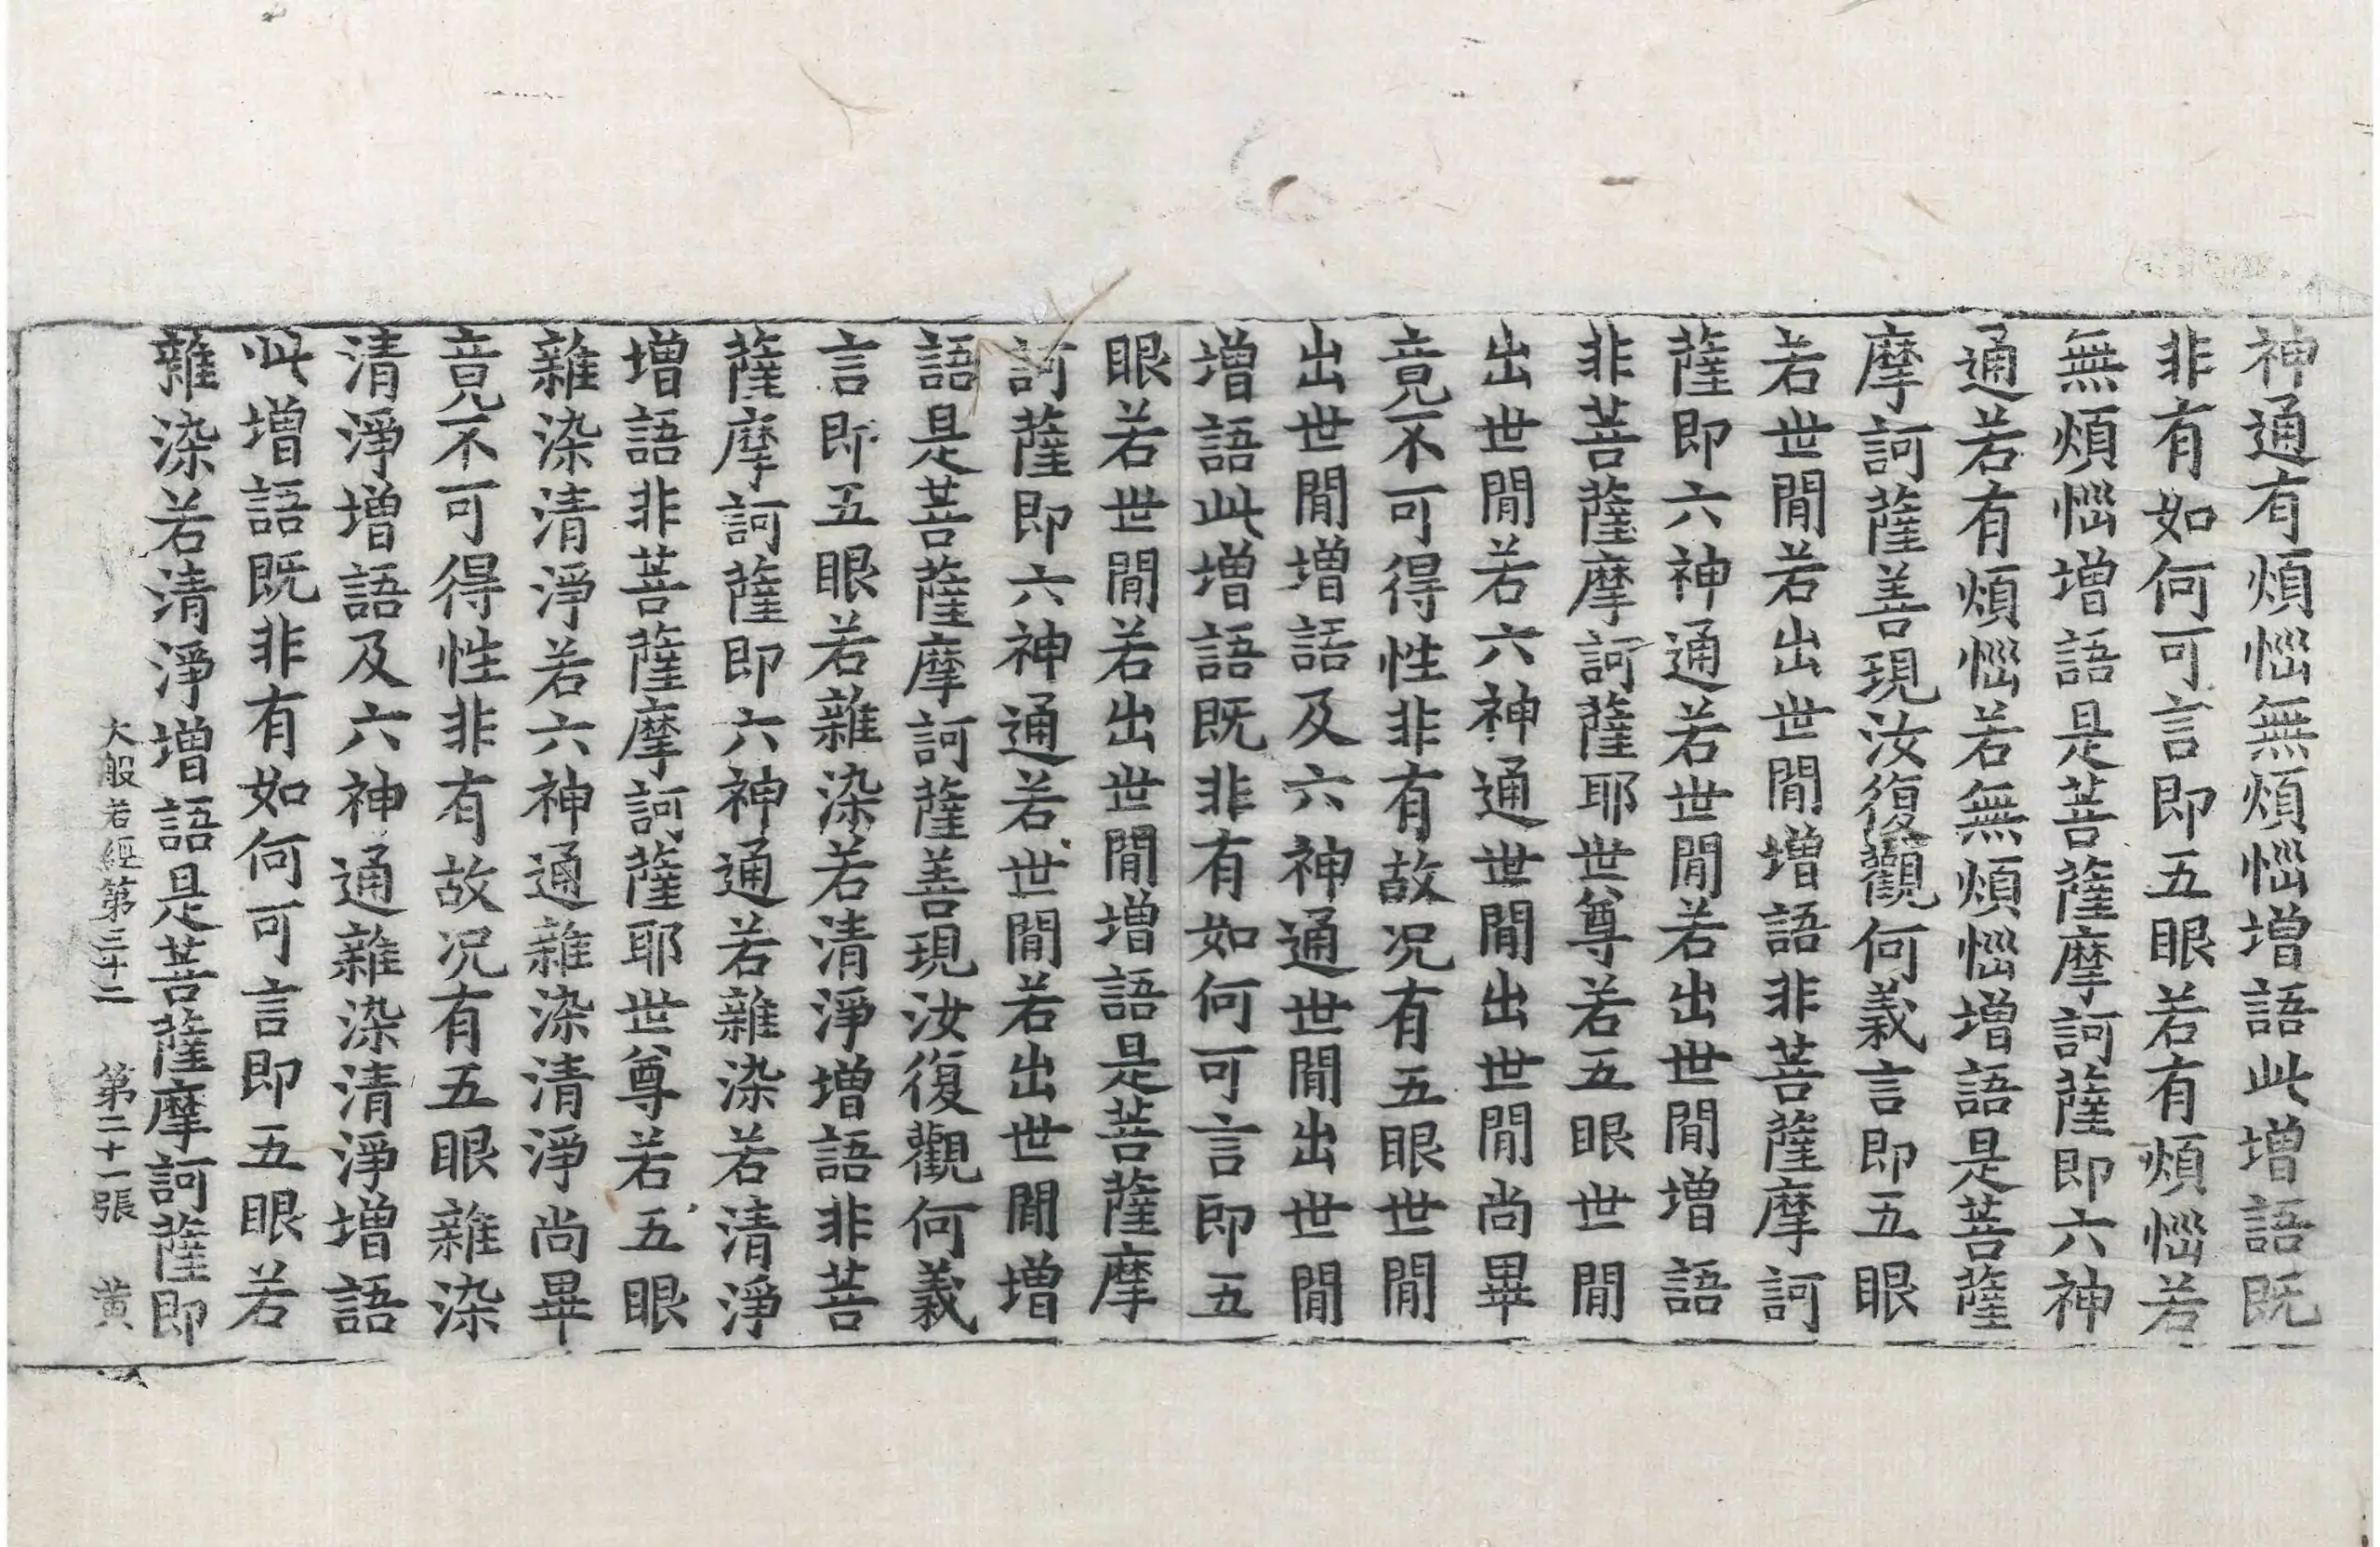 神通有煩惱無煩惱增語此增語既
非有如何可言即五眼若有煩惱若
無煩惱增語是菩薩摩訶薩即六神
通若有煩惱若無煩惱增語是菩薩
摩訶薩善現汝復觀何義言即五眼
若世閒若出世閒增語非菩薩摩訶
薩即六神通若世閒若出世閒增語
非菩薩摩訶薩耶世尊若五眼世閒
出世閒若六神通世閒出世閒尚畢
竟不可得性非有故况有五眼世閒
出世閒增語及六神通世閒出世閒
增語此增語既非有如何可言即五
眼若世閒若出世閒增語是菩薩摩
訶薩即六神通若世閒若出世閒增
語是菩薩摩訶薩善現汝復觀何義
言即五眼若雜染若清淨增語非菩
薩摩訶薩即六神通若雜染若清淨
增語非菩薩摩訶薩耶世尊若五眼
雜染清淨若六神通雜染清淨尚畢
竟不可得性非有故况有五眼雜染
清淨增語及六神通雜染清淨增語
此增語既非有如何可言即五眼若
雜染若清淨增語是菩薩摩訶薩即
大般若經第三十二 第二十一張 黄